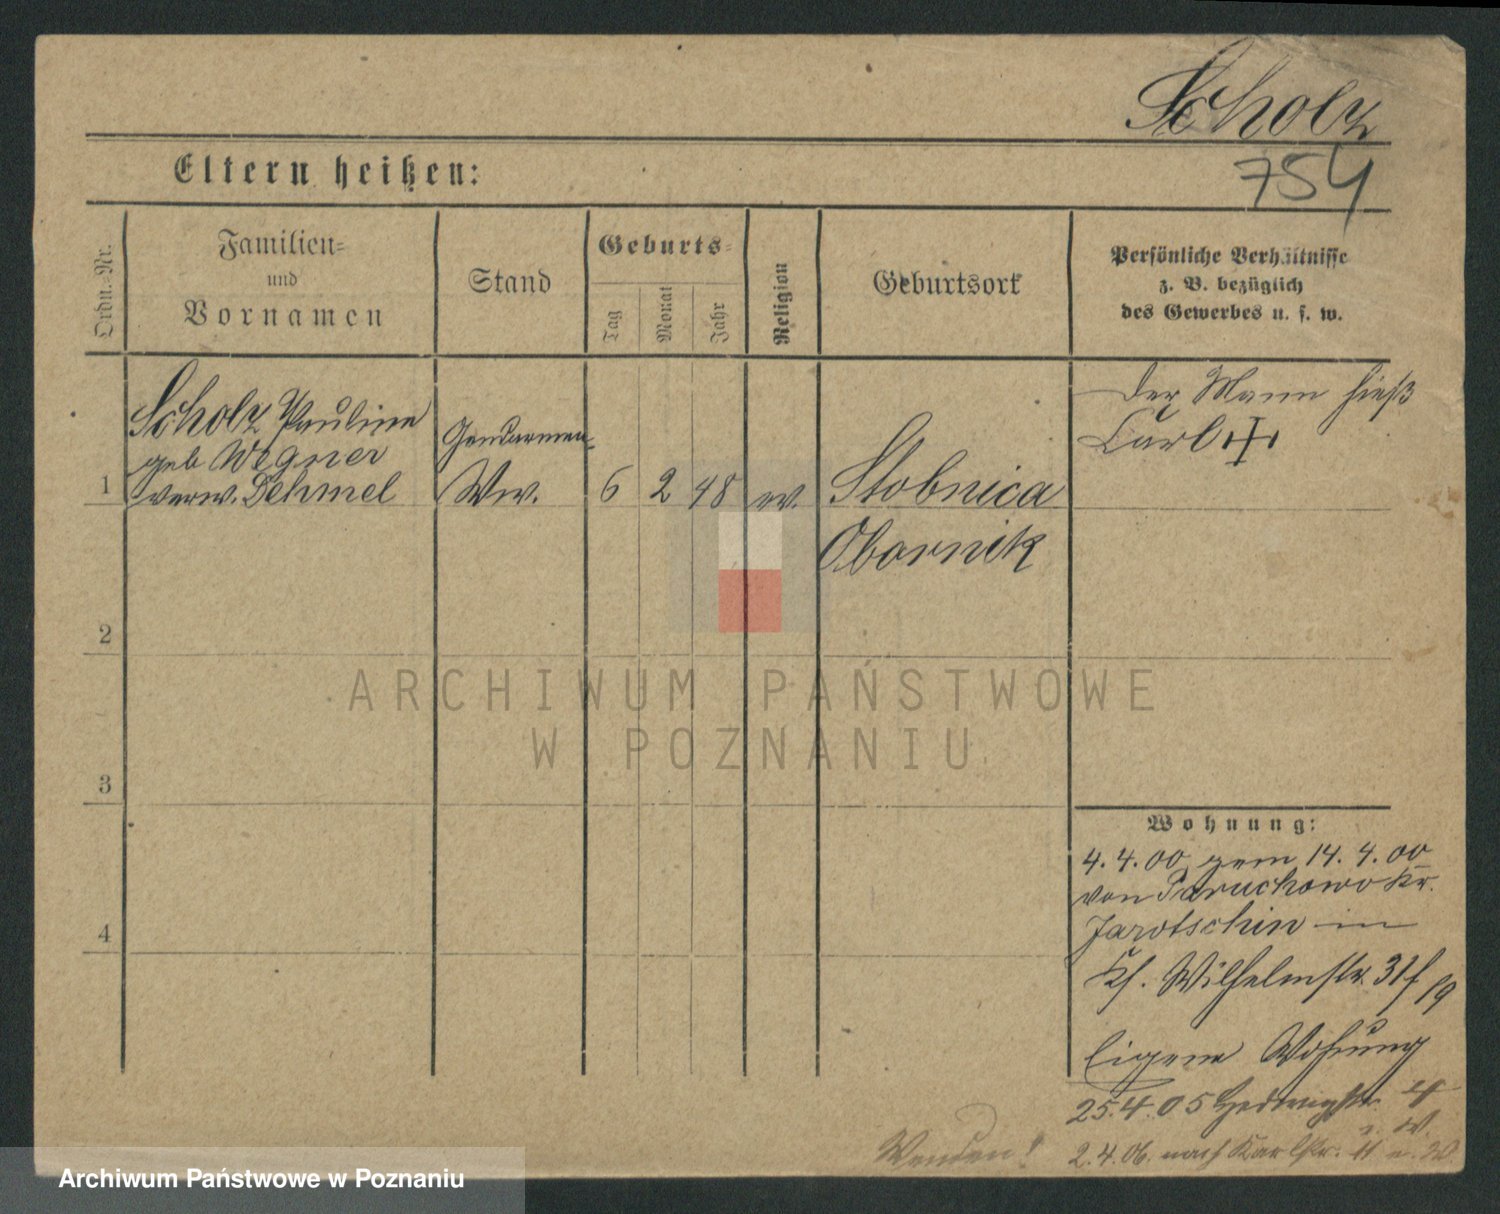 Scholz
754
Eltern heißen:
Ordn.-Nr.
Familien-
und
Vornamen
Stand
Geburts-
Tag
Monat
Jahr
Religion
Geburtsort
Persönliche Verhältnisse
z. B. bezüglich
des Gewerbes u. s. w.
1
Scholz Pauline
geb Wegner
verw. Dehmel
Gendarmen-
Ww.
6
2
48
ev.
Stobnica
Obornik
Der Mann hieß
Carl
2
3
4
Wohnung:
4.4.00 gem 14.4.00
von Paruchowo Kr.
Jarotschin in
Wilhelmstr. 31
Eigene Wohnung
25.4.05 Hedwigstr. 4
2.4.06. nach Karlstr. 11
Wenden!
ARCHIWUM PAŃSTWOWE
W POZNANIU
Archiwum Państwowe w Poznaniu